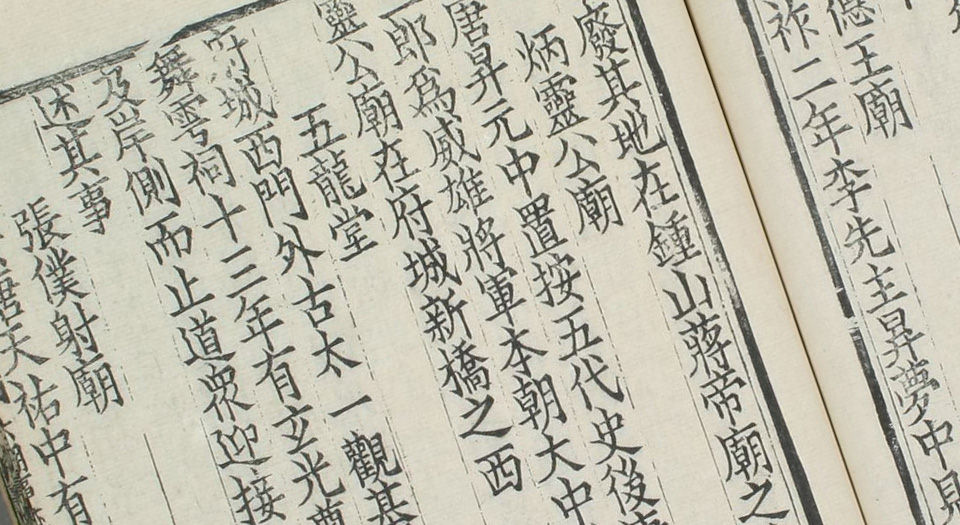 王廟
祚二年李先主昇夢中見
廢其地在鍾山蔣帝廟之
炳靈公廟
唐昇元中置按五代史後
郎爲威雄將軍本朝大中
靈公廟在府城新橋之西
五龍堂
府城西門外古太一觀基
舞雩祠十三年有玄光
及岸側而止道眾迎接
述其事
張僕射廟
唐天祐中有